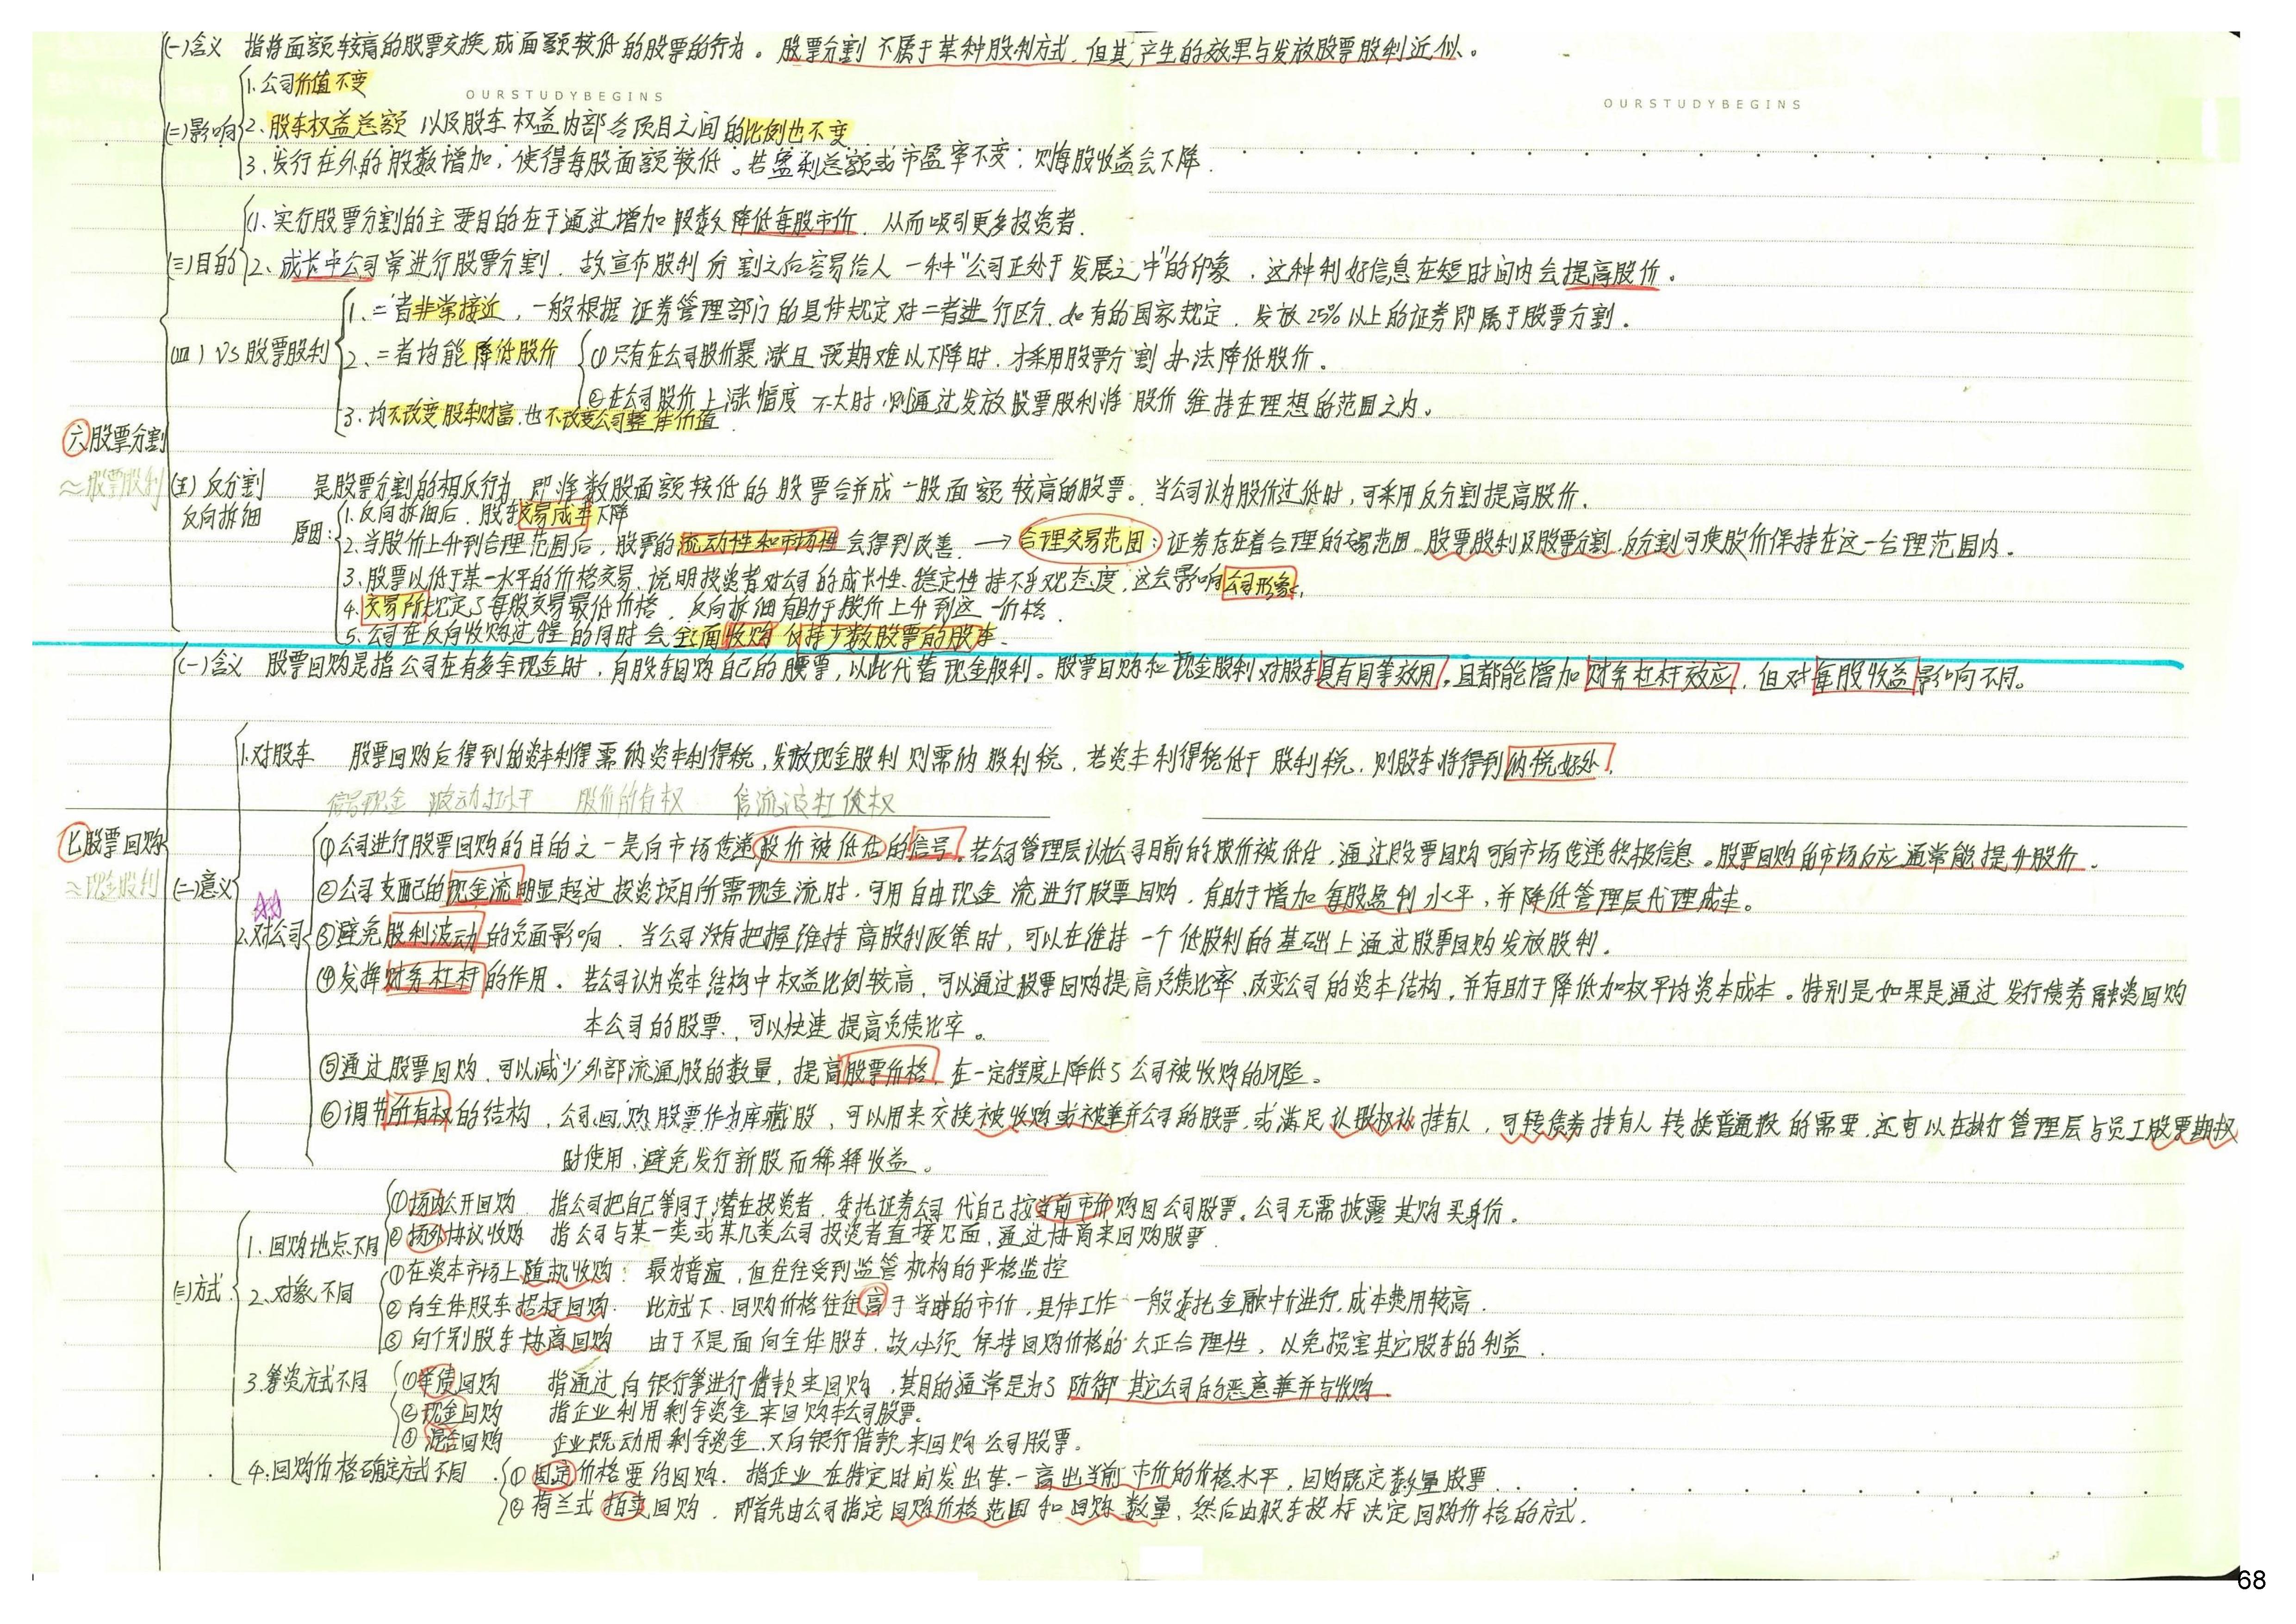 (一)含义 指将面额较高的股票交换成面额较低的股票的行为。股票分割不属于某种股利方式,但其产生的效果与发放股票股利近似。
1.公司价值不变
OURSTUDYBEGINS
OURSTUDYBEGINS
(二)影响 2、股东权益总额 以及股东权益内部各项目之间的比例也不变
3.发行在外的股数增加,使得每股面额较低。若盈利总额或市盈率不变;则每股收益会下降.
1.实行股票分割的主要目的在于通过增加股数降低每股市价,从而吸引更多投资者.
(三)目的 2、成长中公司常进行股票分割.故宣布股利分割之后容易给人一种"公司正处于发展之中"的印象,这种利好信息在短时间内会提高股价。
1.二者非常接近,一般根据证券管理部门的具体规定对二者进行区分.如有的国家规定.发放25%以上的证券即属于股票分割.
(四)VS股票股利 2、二者均能降低股价 ①只有在公司股价暴涨且预期难以下降时.才采用股票分割办法降低股价.
②在公司股价上涨幅度不大时,则通过发放股票股利将股价维持在理想的范围之内。
3.均不改变股东财富,也不改变公司整体价值.
六股票分割
≈股票股利
(五)反分割 是股票分割的相反行为,即将数股面额较低的股票合并成一股面额较高的股票。当公司认为股价过低时,可采用反分割提高股价.
反向拆细
原因:1.反向拆细后.股东交易成本下降
2.当股价上升到合理范围后,股票的流动性和市场性会得到改善.→合理交易范围:证券存在着合理的交易范围.股票股利及股票分割.反分割可使股价保持在这一合理范围内.
3.股票以低于某一水平的价格交易,说明投资者对公司的成长性、稳定性持不乐观态度,这会影响公司形象.
4.交易所规定了每股交易最低价格.反向拆细有助于股价上升到这一价格.
5.公司在反向收购过程的同时会全面收购仅持少数股票的股东.
(一)含义 股票回购是指公司在有多余现金时,向股东回购自己的股票,以此代替现金股利。股票回购和现金股利对股东具有同等效用,且都能增加财务杠杆效应,但对每股收益影响不同。
1.对股东 股票回购后得到的资本利得需纳资本利得税,发放现金股利则需纳股利税.若资本利得税低于股利税.则股东将得到纳税好处!
信号现金 波动杠杆 股价所有权 信流波杠价权
七股票回购
≈现金股利
(二)意义
①公司进行股票回购的目的之一是向市场传递股价被低估的信号.若公司管理层认为公司目前的股价被低估,通过股票回购可向市场传递积极信息。股票回购的市场反应通常能提升股价.
②公司支配的现金流明显超过投资项目所需现金流时.可用自由现金流进行股票回购,有助于增加每股盈利水平,并降低管理层代理成本。
2.对公司 ③避免股利波动的负面影响.当公司没有把握维持高股利政策时,可以在维持一个低股利的基础上通过股票回购发放股利.
④发挥财务杠杆的作用.若公司认为资本结构中权益比例较高,可以通过股票回购提高负债比率、改变公司的资本结构,并有助于降低加权平均资本成本。特别是如果是通过发行债券融资回购
本公司的股票.可以快速提高负债比率。
⑤通过股票回购,可以减少外部流通股的数量,提高股票价格,在一定程度上降低了公司被收购的风险。
⑥调节所有权的结构,公司回购股票作为库藏股,可以用来交换被收购或被兼并公司的股票,或满足认股权认持有人,可转债券持有人转换普通股的需要,还可以在执行管理层与员工股票期权
时使用,避免发行新股而稀释收益。
①场内公开回购 指公司把自己等同于潜在投资者.委托证券公司代自己按当前市价购回公司股票。公司无需披露其购买身份。
1.回购地点不同 ②场外协议收购 指公司与某一类或某几类公司投资者直接见面,通过协商来回购股票.
①在资本市场上随机收购:最为普遍,但往往受到监管机构的严格监控
(三)方式 2.对象不同 ②向全体股东招标回购.此方式下.回购价格往往高于当时的市价,具体工作一般委托金融中介进行,成本费用较高.
③向个别股东协商回购 由于不是面向全体股东.故必须保持回购价格的公正合理性,以免损害其它股东的利益.
3.筹资方式不同 ①举债回购 指通过向银行等进行借款来回购,其目的通常是为了防御其它公司的恶意兼并与收购.
②现金回购 指企业利用剩余资金来回购本公司股票.
③混合回购 企业既动用剩余资金.又向银行借款来回购公司股票。
4.回购价格确定方式不同 ①固定价格要约回购.指企业在特定时间发出某一高出当前市价的价格水平,回购既定数量股票.
②荷兰式拍卖回购.即首先由公司指定回购价格范围和回购数量,然后由股东投标决定回购价格的方式.
68